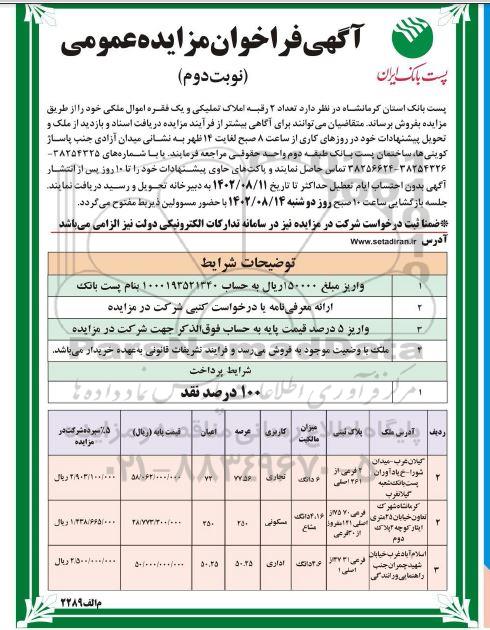 پست بانک ایران
آگهی فراخوان مزایده عمومی
(نوبت دوم)
پست بانک استان کرمانشاه در نظر دارد تعداد ۲ رقبه املاک تملیکی و یک فقره اموال ملکی خود را از طریق
مزایده بفروش برساند. متقاضیان می‌توانند برای آگاهی بیشتر از فرآیند مزایده دریافت اسناد و بازدید از ملک و
تحویل پیشنهادات خود در روزهای کاری از ساعت ۸ صبح لغایت ۱۴ ظهر به نشانی میدان آزادی جنب پاساژ
کویتی‌ها، ساختمان پست بانک طبقه دوم واحد حقوقی مراجعه فرمایند. یا با شماره‌های ۳۸۲۵۴۳۲۵-
۳۸۲۵۴۳۲۶-۳۸۲۵۶۶۲۴ تماس حاصل نمایند و پاکت‌های حاوی پیشنهادات خود را تا ۱۰ روز پس از انتشار
آگهی بدون احتساب ایام تعطیل حداکثر تا تاریخ ۱۴۰۲/۰۸/۱۱ به دبیرخانه تحویل و رسید دریافت نمایند.
جلسه بازگشایی ساعت ۱۰ صبح روز دوشنبه ۱۴۰۲/۰۸/۱۴ با حضور مسوولین ذیربط مفتوح می‌گردد.
*ضمنا ثبت درخواست شرکت در مزایده نیز در سامانه تدارکات الکترونیکی دولت نیز الزامی می‌باشد
آدرس www.setadiran.ir
توضیحات شرایط
۱ واریز مبلغ ۱۵۰۰۰۰ ریال به حساب ۱۰۰۰۱۹۳۵۲۱۳۴۰ بنام پست بانک
۲ ارائه معرفی‌نامه یا درخواست کتبی شرکت در مزایده
۳ واریز ۵ درصد قیمت پایه به حساب فوق‌الذکر جهت شرکت در مزایده
۴ ملک با وضعیت موجود به فروش می‌رسد و فرایند تشریفات قانونی به‌عهده خریدار می‌باشد.
شرایط پرداخت
۱ ۱۰۰ درصد نقد
ردیف آدرس ملک پلاک ثبتی میزان مالکیت کاربری عرصه اعیان قیمت پایه (ریال) ۵٪ سپرده شرکت در مزایده
۲ گیلان‌غرب-میدان شورا-خ یادآوران پست بانک شعبه گیلانغرب ۲ فرعی از ۲۶۱ اصلی ۶ دانگ تجاری ۷۷.۵۶ ۷۲ ۵۸/۰۶۲/۰۰۰/۰۰۰ ۲/۹۰۳/۱۰۰/۰۰۰ ریال
۲ کرمانشاه شهرک تعاون خیابان ۲۵متری ایثار کوچه ۲ پلاک دوم مسکونی ۲۵۰ ۲۵۰ ۲۸/۷۷۳/۳۰۰/۰۰۰ ۱/۴۳۸/۶۶۵/۰۰۰ ریال
۳ اسلام‌آبادغرب خیابان شهید چمران جنب راهنمایی و رانندگی اداری ۵۰.۲۵ ۵۰.۲۵ ۵۰/۰۰۰/۰۰۰/۰۰۰ ۲/۵۰۰/۰۰۰/۰۰۰ ریال
م الف ۲۲۸۹
ParsNamadData
۰۲۱-۸۸۳۴۹۶۷۰-۵